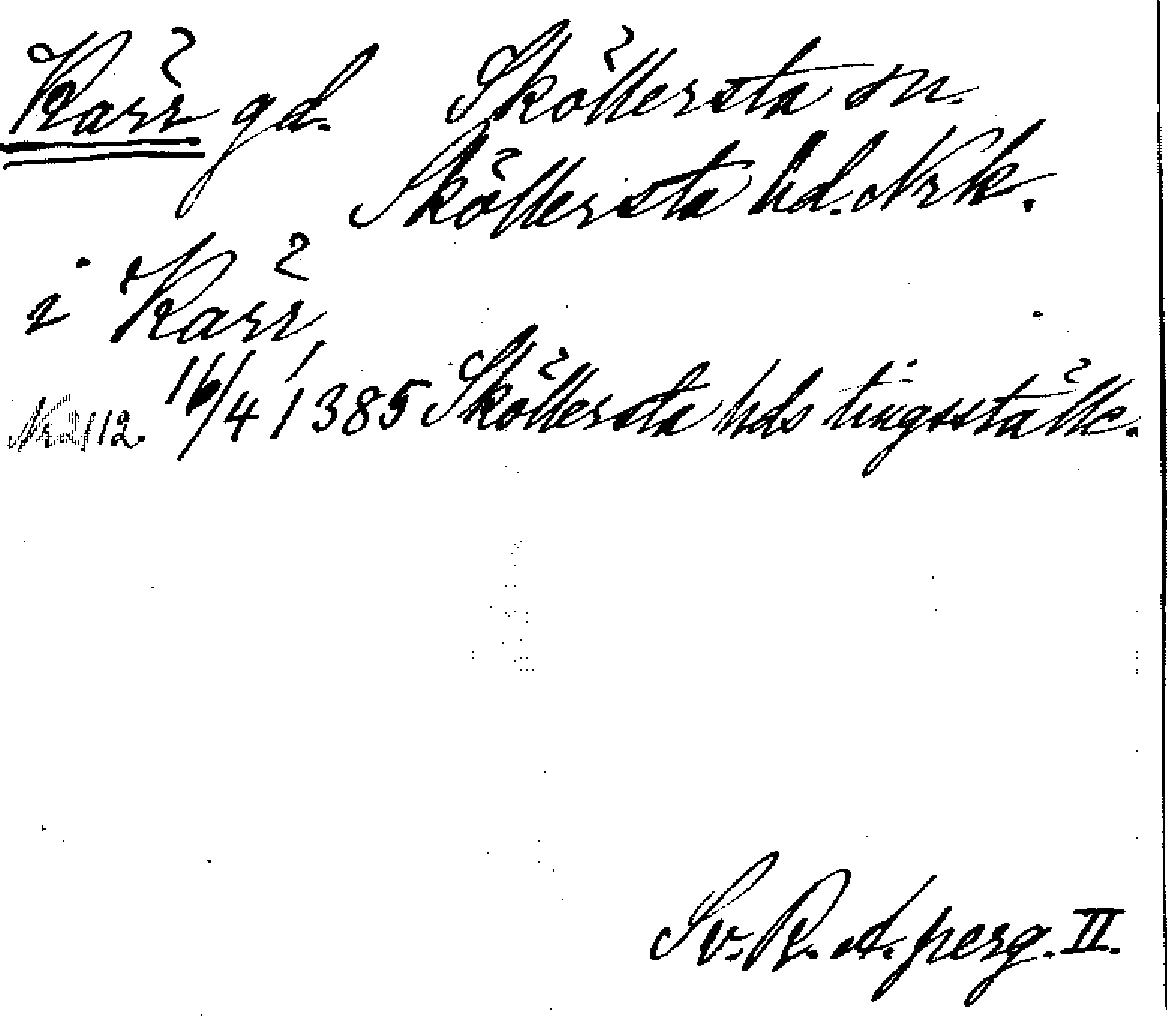 Kärr gd. Sköllersta sn.
Sköllersta hd. Nrk.
i Kärr
Nr 2112. 16/4 1385 Sköllersta hds tingsställe.
Sv. R. A. perg. II.